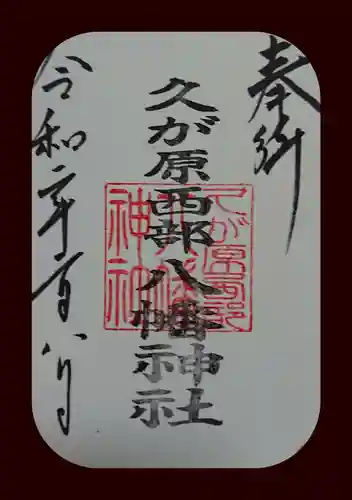 奉拝
久が原西部八幡神社
久が原西部
八幡
神社
令和二年一月八日